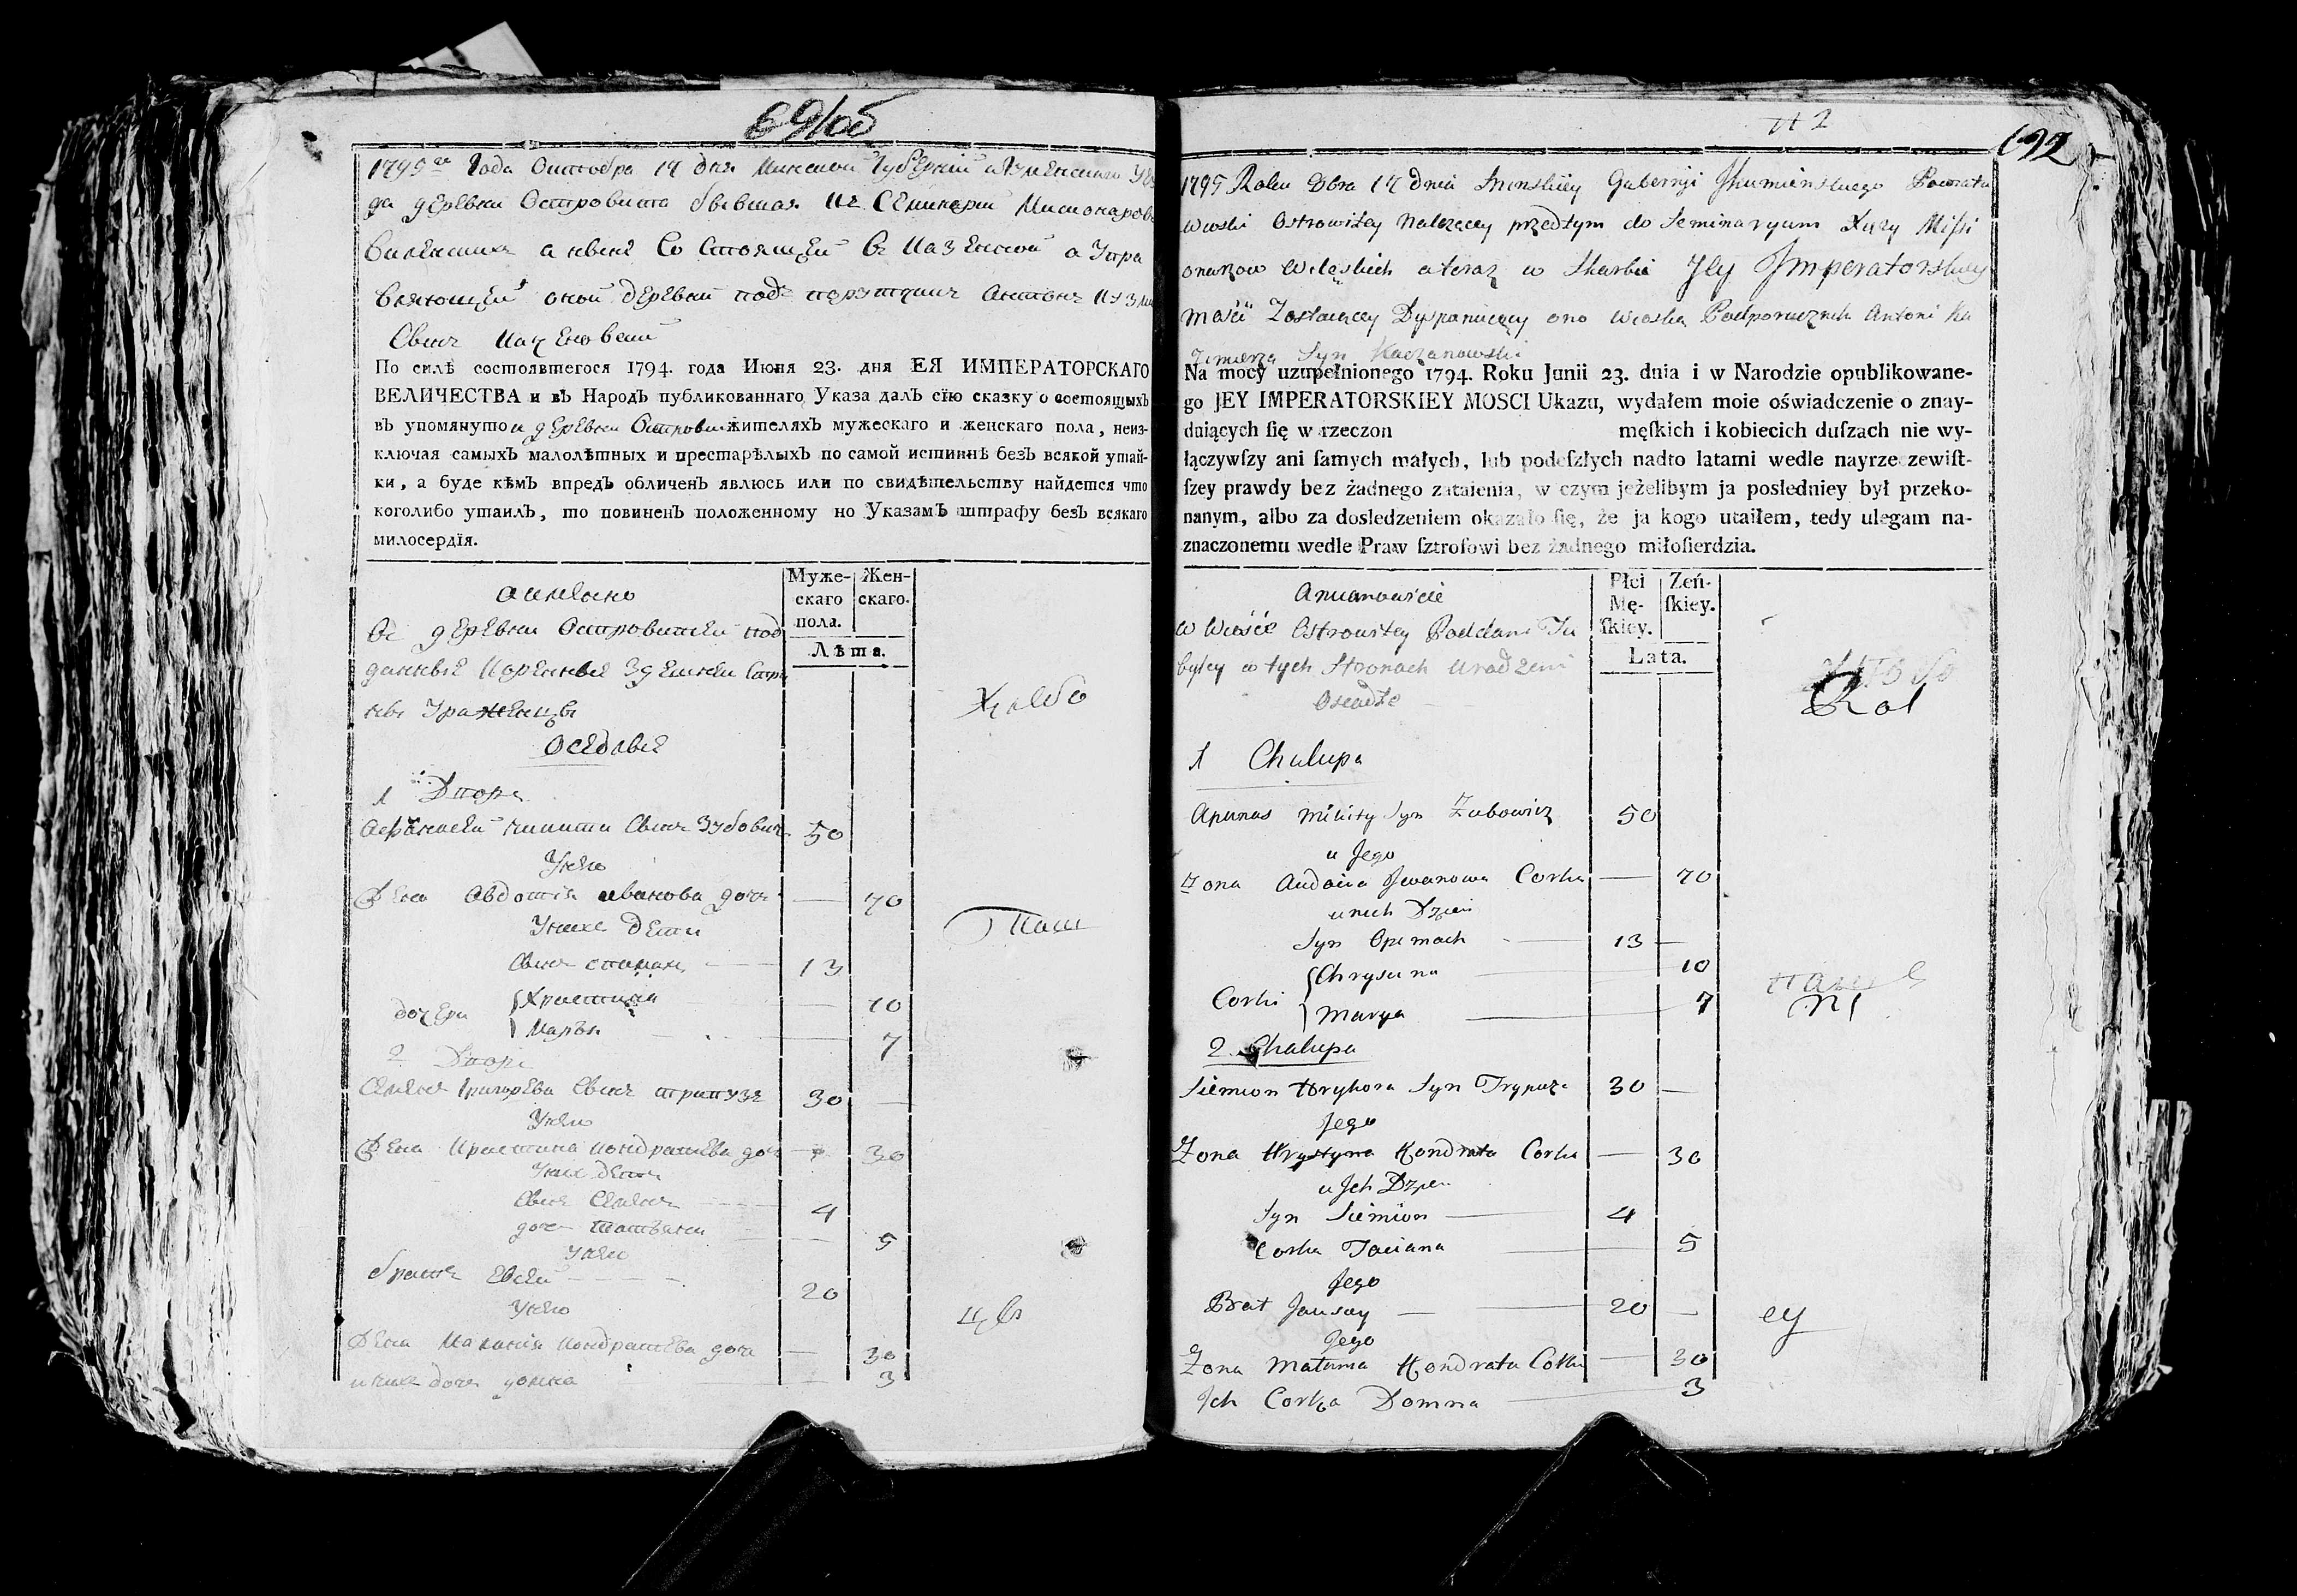 69/об
1795го Года Октобра 17 дня Минской Губернии Игуменскаго
да деревни Островита бывшая Из Семинарии Мисионаров
Виленских а ныне Со Стоящей в Казенной а Упра
вляющей оной деревни подпорутчик Антон
Сын Каченовский
По силѣ состоявшегося 1794. года Июня 23. дня ЕЯ ИМПЕРАТОРСКАГО
ВЕЛИЧЕСТВА и въ Народъ публикованнаго Указа далъ сїю сказку о состоящихъ
въ упомянутои деревни Острови жителяхъ мужескаго и женскаго пола, неиз-
ключая самыхъ малолѣтных и престарѣлыхъ по самой истиннѣ безъ всякой утай-
ки, а буде кѣмъ впредъ обличенъ явлюсь или по свидѣтельству найдется что
коголибо утаилъ, то повиненъ положенному по Указамъ штрафу безъ всякаго
милосердїя.
а имянно
Муже-
скаго
пола.
Жен-
скаго.
Лѣта.
Во деревни Островитеи под
данные Коренные Здешнеи Сторо
ны Уроженцы
Оседлые
Хлебо
1 Дворъ
Афанасей Никиты Сынъ Зубовичъ 50
У него
Жена Авдотия Иванова дочь — 70
У них Дети
Сынъ 13
дочери { Христина — 10
Марья — 7
Паш
2 Дворъ
Семенъ Григорева Сынъ Трипузъ 30 —
У него
Жена Христина Кондратева дочь — 30
У них Дети
Сынъ Семенъ 4
дочь Татьяна — 5
У него
братъ Евсей 20
У него
Жена Малания Кондратева дочь — 30
и них дочь домна — 3
цы
192
1795 Roku 8bra 17 dnia Minskiey Gubernji Jhumińskiego Powiatu
Wioski Ostrowitey Nalezącey przedtym do Seminaryum Xięży Missi
onarzow Wileskich a teraz w Skarbie Jey Imperatorskiey
Mości Zostaiącey Dysponuiący ono Wioską Podporucznik Antoni Ka
zimierza Syn Kaczanowski
Na mocy uzupełnionego 1794. Roku Junii 23. dnia i w Narodzie opublikowane-
go JEY IMPERATORSKIEY MOSCI Ukazu, wydałem moie oświadczenie o znay-
duiących ſię w rzeczon męſkich i kobiecich duſzach nie wy-
łączywſzy ani ſamych małych, lub podeſzłych nadto latami wedle nayrzeczewiſt-
ſzey prawdy bez żadnego zataienia, w czym jeżelibym ja posledniey był przeko-
nanym, albo za dosledzeniem okazało ſię, że ja kogo utaiłem, tedy ulegam na-
znaczonemu wedle Praw ſztroſowi bez żadnego miłoſierdzia.
Płci
Mę-
ſkiey.
Zeń-
ſkiey.
Lata.
W Wiośće Ostrowitey Poddani Tu
byley w tych Stronach Urodzeni
Osiadłe
Rol
1 Chalupa
Apanas Mikity Syn Zubowicz 50
u Jego
Zona Audocia Jwanowa Corka — 70
u nich Dzieci
Syn 13 —
Corki { Chrystina — 10
Marya — 7
ni
2 Chalupa
Siemion Hryhora Syn Trypuz 30 —
Jego
Zona Krystyna Kondrata Corka — 30
u Jch Dzieci
Syn Siemion — 4
Corka Taciana — 5
Jego
Brat Jausiey — 20 —
Jego
Zona Malania Kondrata Corka — 30
Jch Corka Domna — 3
cy